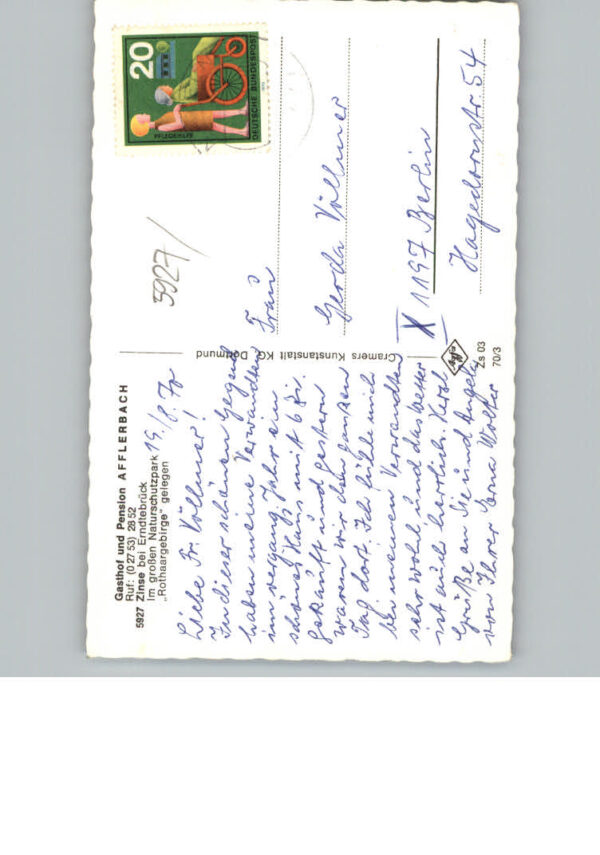 Gasthof und Pension AFFLERBACH
Ruf: (0 27 53) 28 52
5927 Zinse bei Erndtebrück
Im großen Naturschutzpark
„Rothaargebirge" gelegen
19./8. 70
Liebe Fr. Völlmer!
In dieser schönen Gegend
haben meine Verwandten
im vergang. Jahr ein
schönes Haus mit 6 Zi.
gekauft und gestern
waren wir den ganzen
Tag dort. Ich fühle mich
bei meinen Verwandten
sehr wohl und das Wetter
ist auch herrlich. Herzl.
Grüße an Sie und Angela
von Ihrer Erna Wolter
Cramers Kunstanstalt KG, Dortmund
Agfa
Zs 03
70/3
5927/
20
PFLEGEHILFE
DEUTSCHE BUNDESPOST
Frau
Gerda Völlmer
X 1197 Berlin
Hagedornstr 54